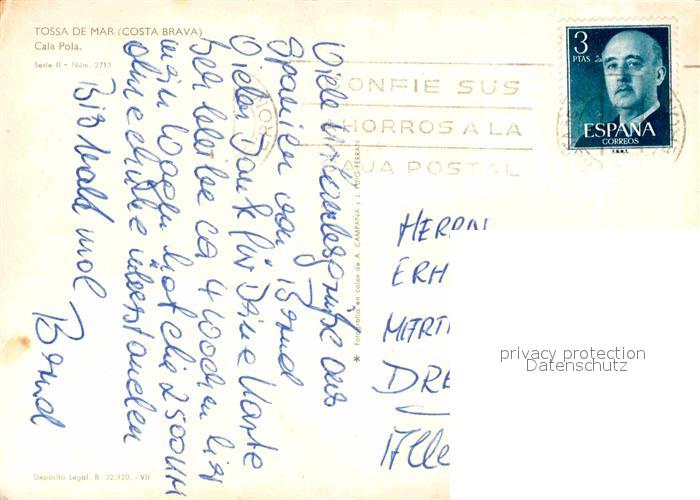 TOSSA DE MAR (COSTA BRAVA)
Cala Pola.
Serie II - Núm. 2713
Viele Urlaubsgrüße aus
Spanien von Bernd
Vielen Dank für Deine Karte
Ich bleibe ca 4 Wochen hier
mein Wagen hat die 2500 KM
ohne überstanden
Bis bald mal
Bernd
Depósito Legal. B. 32.920. - VII
* Fotografía en color de A. CAMPAÑÁ y J. PUIG-FERRAN
CONFIE SUS
AHORROS A LA
CAJA POSTAL
3
PTAS
ESPAÑA
CORREOS
F.N.M.T.
HERRN
ERH
MARTI
DRE
Alle
privacy protection
Datenschutz